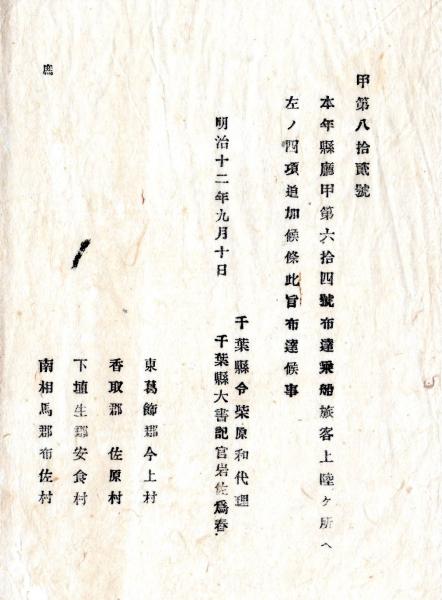 甲第八拾貳號
本年縣廳甲第六拾四號布達乘船旅客上陸ケ所ヘ
左ノ四項追加候條此旨布達候事
明治十二年九月十日
千葉縣令柴原和代理
千葉縣大書記官岩佐爲春
東葛飾郡今上村
香取郡佐原村
下埴生郡安食村
南相馬郡布佐村
庶